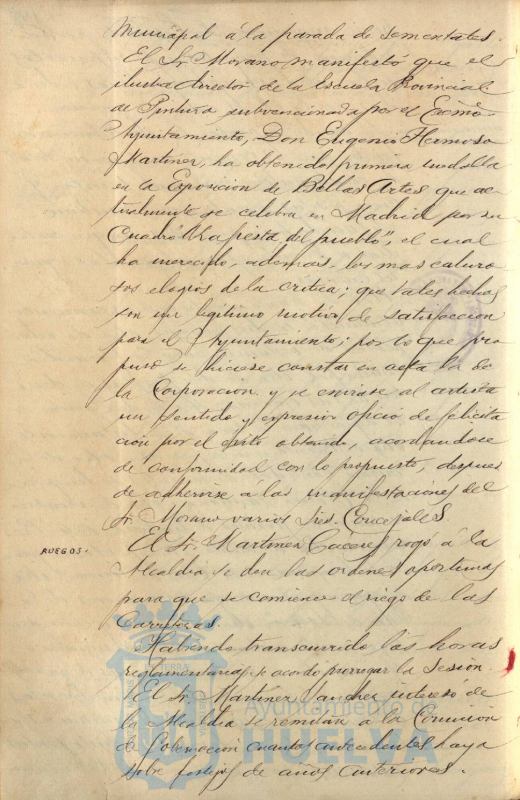 Municipal á la parada de sementales.
El Sr. Morano manifestó que el
ilustre director de la Escuela Provincial
de Pintura subvencionada por el Excmo
Ayuntamiento, Don Eugenio Hermoso
Martinez, ha obtenido primera medalla
en la Exposicion de Bellas Artes que ac
tualmente se celebra en Madrid por su
Cuadro "La fiesta del pueblo", el cual
ha merecido, además, los mas caluro
sos elogios de la crítica; que tales hechos
son un legítimo motivo de satisfaccion
para el Ayuntamiento; por lo que pro
puso se hiciese constar en acta la de
la Corporacion y se enviase al artista
un sentido y expresivo oficio de felicita
ción por el éxito obtenido, acordandose
de conformidad con lo propuesto, despues
de adherirse á las manifestaciones del
Sr. Morano varios Sres. Concejales.
RUEGOS.
El Sr. Martinez Caceres rogó á la
Alcaldía se den las ordenes oportunas
para que se comience el riego de las
Carreteras.
Habiendo transcurrido las horas
reglamentarias, se acordó prorrogar la sesion.
El Sr. Martinez Sanchez interesó de
la Alcaldia se remitan á la Comision
de Gobernacion cuantos antecedentes haya
sobre festejos de años anteriores.
Ayuntamiento de
HUELVA